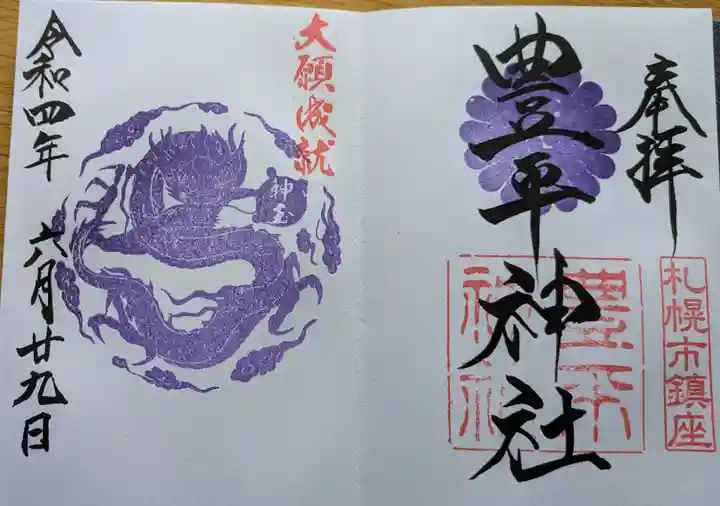 奉拝
札幌市鎮座
豊平神社
豊平
神社
大願成就
神玉
令和四年 六月廿九日